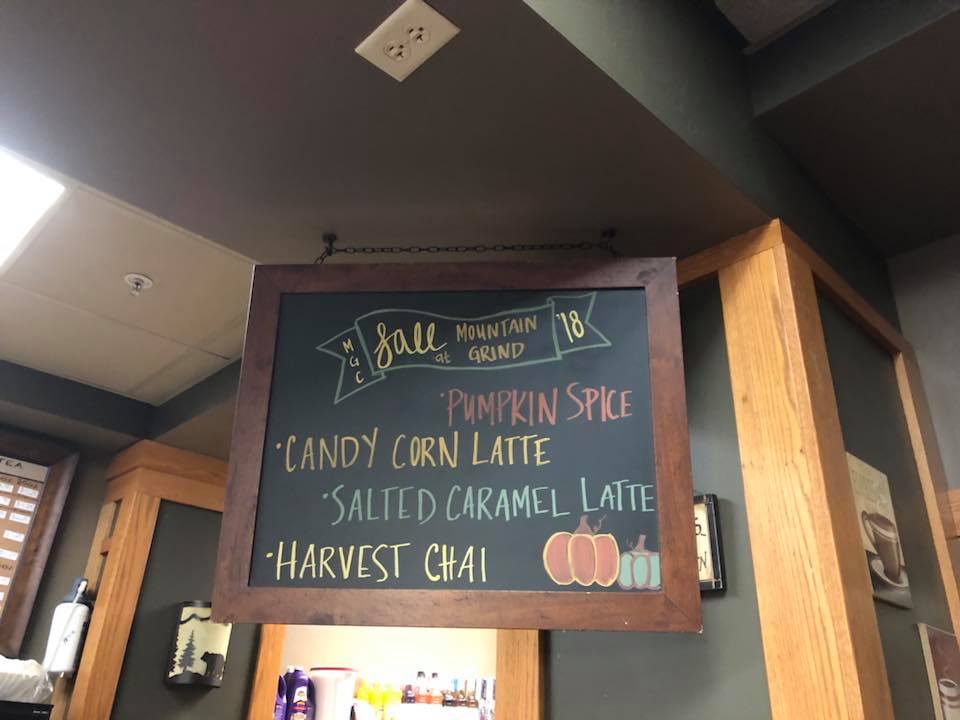 MGC fall at MOUNTAIN GRIND '18
·PUMPKIN SPICE
·CANDY CORN LATTE
·SALTED CARAMEL LATTE
·HARVEST CHAI
TEA